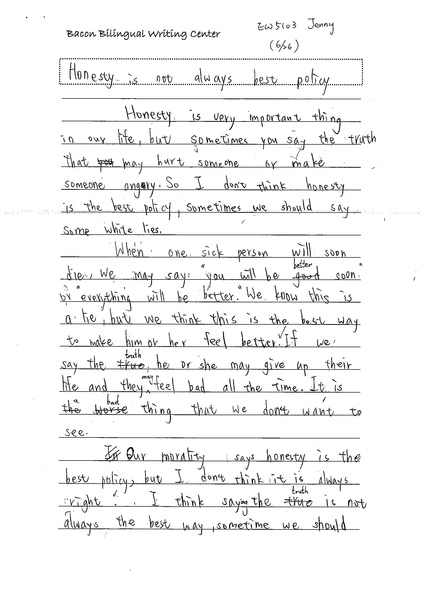 Bacon Bilingual Writing Center
EW5103 Jenny
(6/56)
Honesty is not always best policy
Honesty is very important thing
in our life, but sometimes you say the truth
that may hurt someone or make
someone angry. So I don't think honesty
is the best policy, sometimes we should say
some white lies.
When one sick person will soon
die, we may say: "you will be better soon."
or "everything will be better." We know this is
a lie, but we think this is the best way
to make him or her feel better. If we
say the truth, he or she may give up their
life and they may feel bad all the time. It is
a bad thing that we don't want to
see.
Our morality says honesty is the
best policy, but I don't think it is always
right. I think saying the truth is not
always the best way, sometime we should